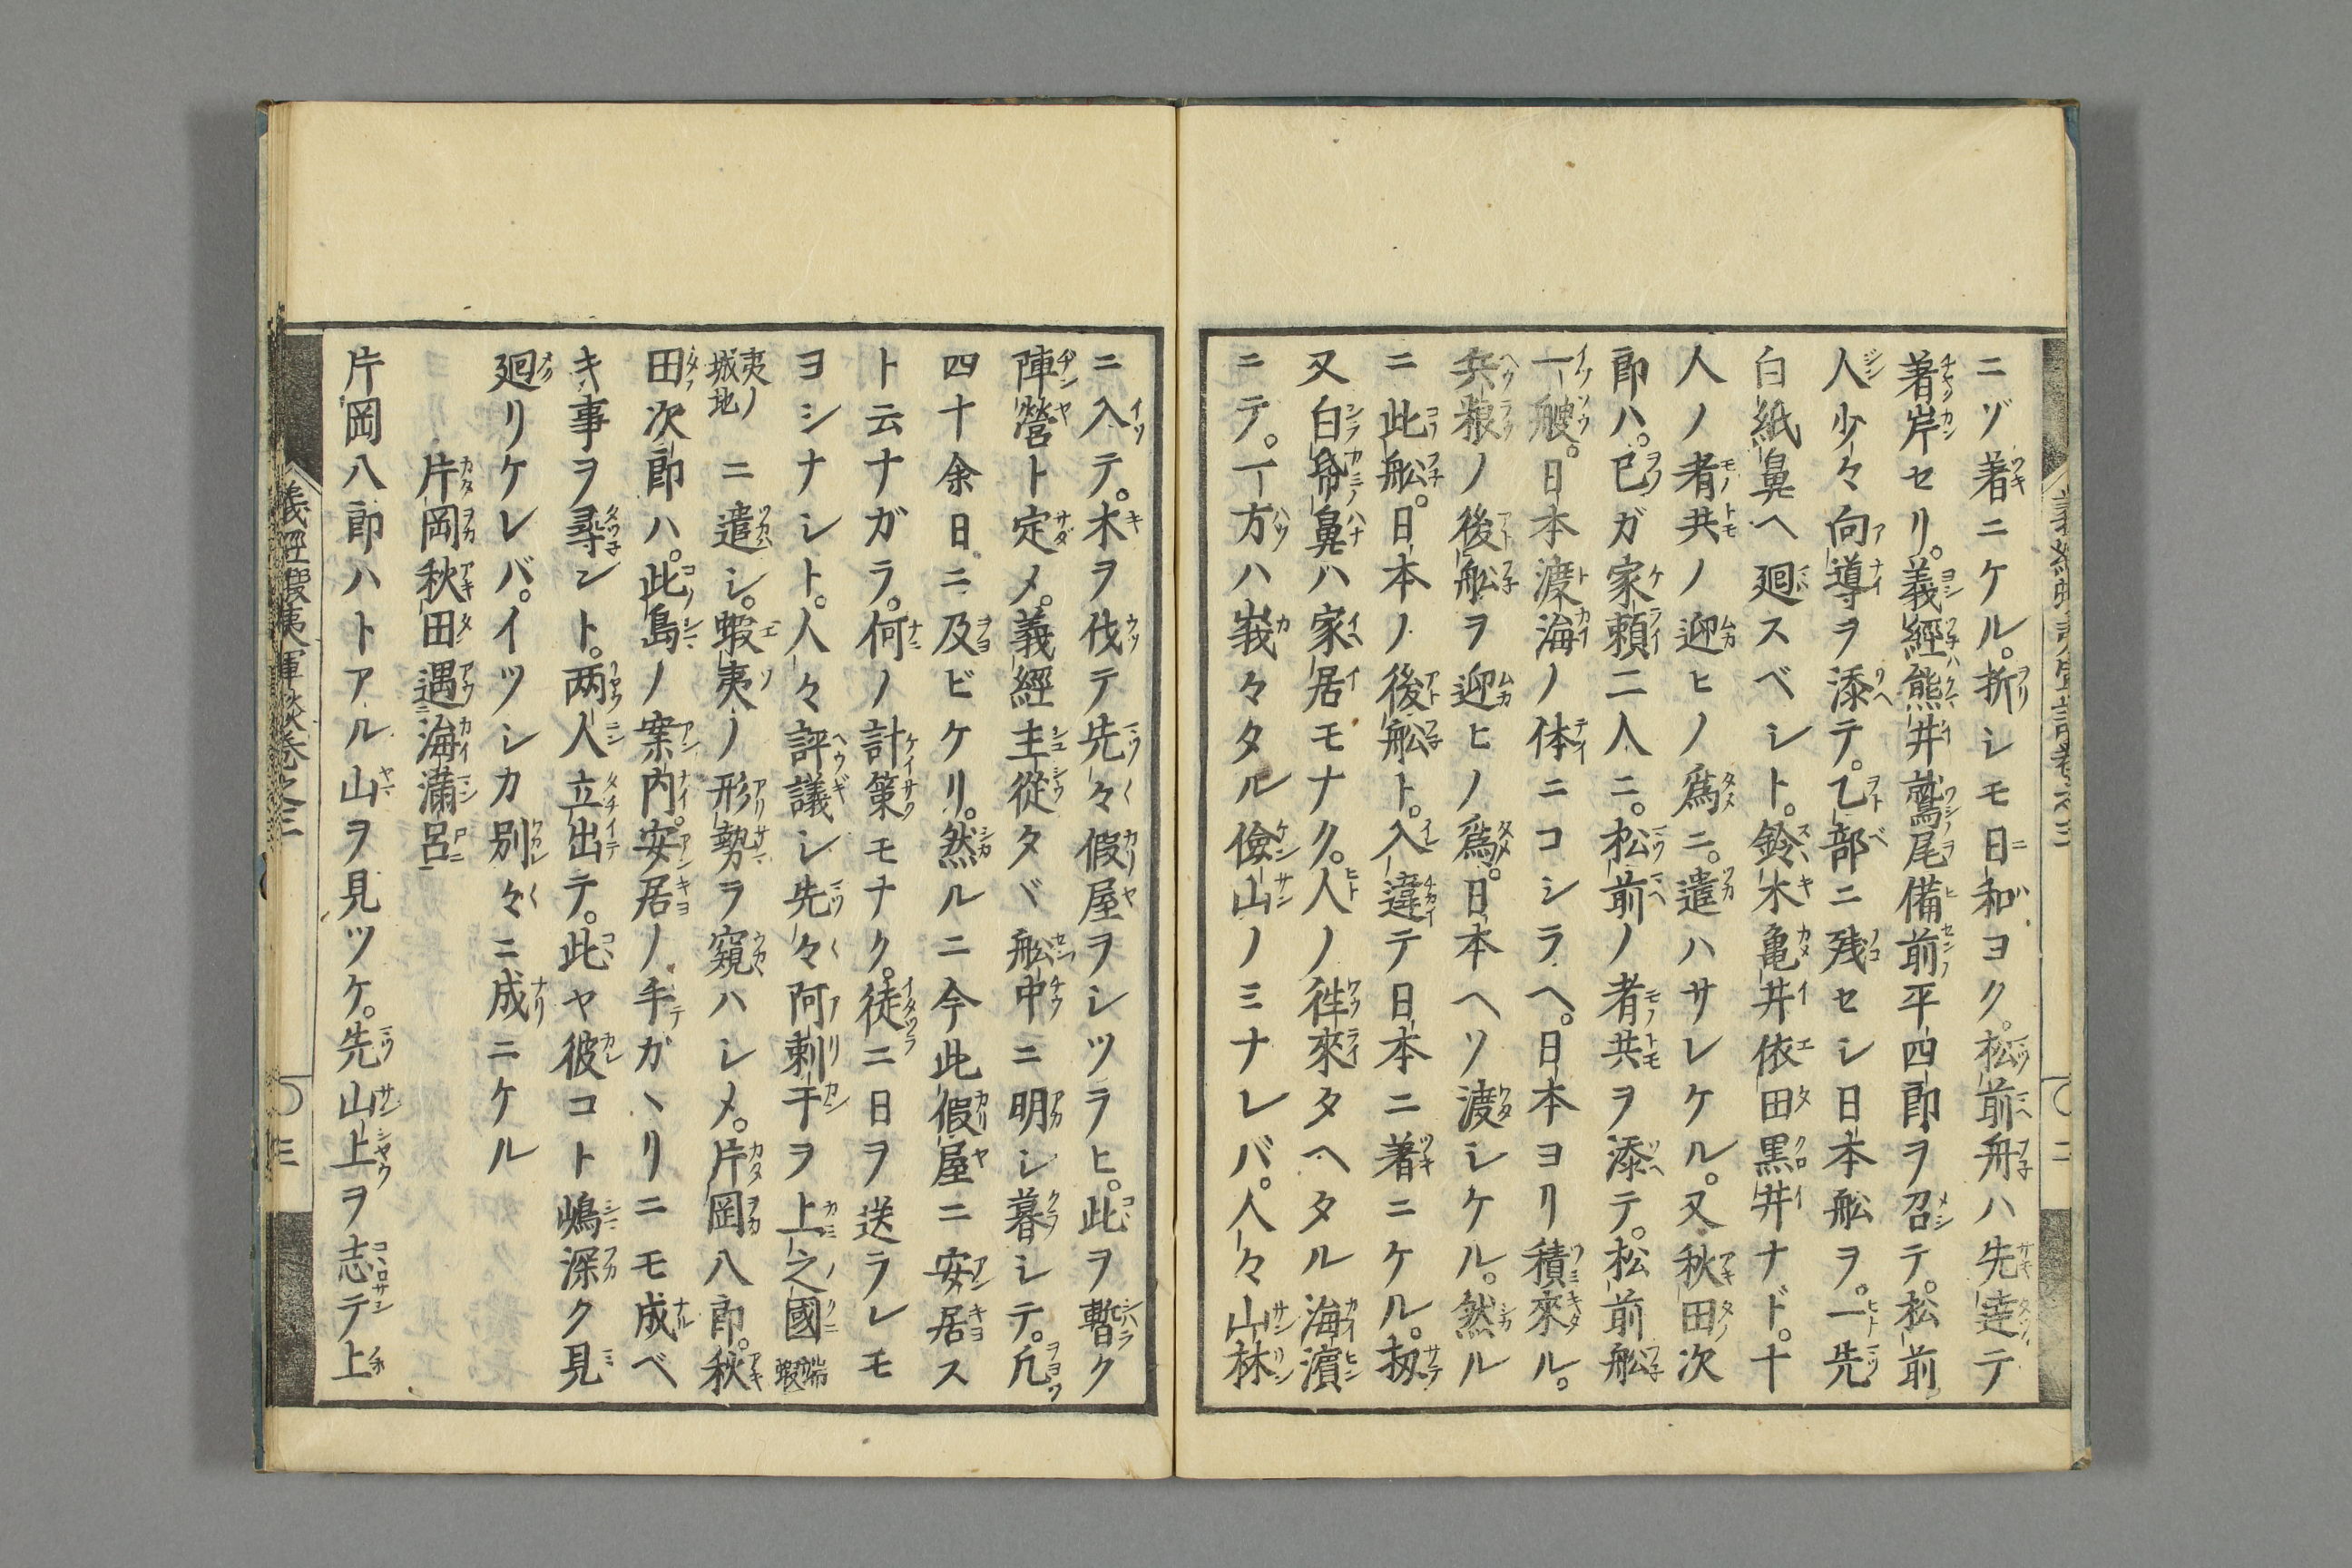 ニゾ著ニケル。折シモ日和ヨク。松前舟ハ先達テ
著岸セリ。義經熊井鷲尾備前平四郎ヲ召テ。松前
人少々向導ヲ添テ。乙部ニ残セシ日本舩ヲ。一先
白紙鼻ヘ廻スベシト。鈴木亀井依田黒井ナド。十
人ノ者共ノ迎ヒノ爲ニ。遣ハサレケル。又秋田次
郎ハ。己ガ家頼二人ニ。松前ノ者共ヲ添テ。松前舩
一艘。日本渡海ノ体ニコシラヘ。日本ヨリ積來ル。
兵粮ノ後舩ヲ迎ヒノ爲。日本ヘソ渡シケル。然ル
ニ此舩。日本ノ後舩ト。入違テ日本ニ著ニケル。扨
又白帋鼻ハ家居モナク。人ノ徃來タヘタル海濵
ニテ。一方ハ峩々タル儉山ノミナレバ。人々山林
ニ入テ。木ヲ伐テ先々假屋ヲシツラヒ。此ヲ暫ク
陣營ト定メ。義經主從タヾ舩中ニ明シ暮シテ。凢
四十余日ニ及ビケリ。然ルニ今此假屋ニ安居ス
ト云ナガラ。何ノ計策モナク。徒ニ日ヲ送ラレモ
ヨシナシト。人々評議シ先々阿剌干ヲ上之國 端蝦
夷ノ城地。ニ遣シ。蝦夷ノ形勢ヲ窺ハシメ。片岡八郎。秋
田次郎ハ。此島ノ案内。安居ノ手ガヽリニモ成ベ
キ事ヲ尋ント。两人立出テ。此ヤ彼コト嶋深ク見
廻リケレバ。イツシカ別々ニ成ニケル
片岡秋田遇海滿呂
片岡八郎ハトアル山ヲ見ツケ。先山上ヲ志テ上
義經蝦夷軍談巻之三
三